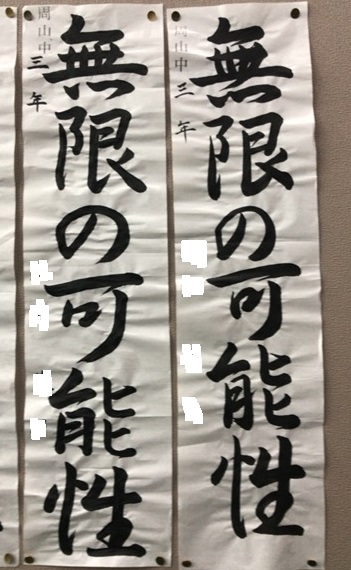 無限の可能性
周山中
三年
無限の可能性
周山中
三年